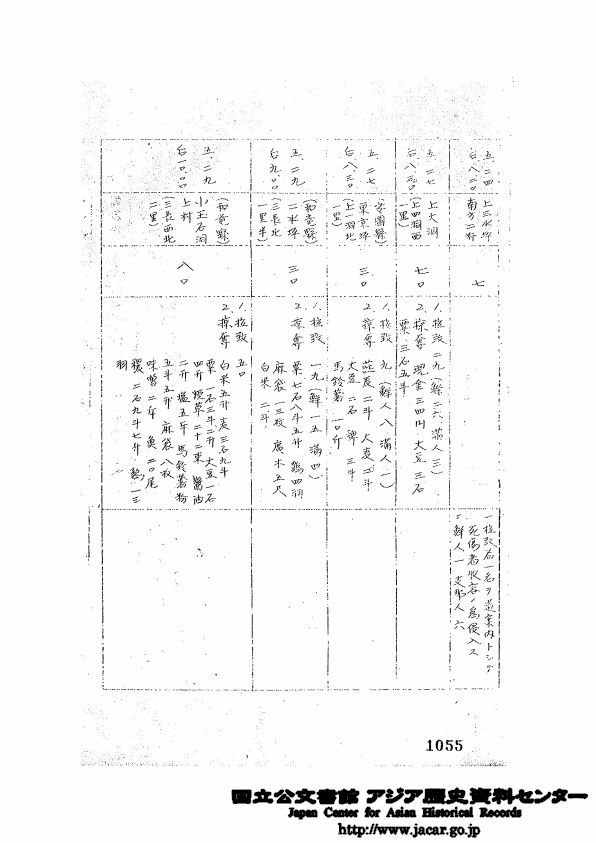 五、二四
台八、二〇
上三水坪
南方二粁
七
一拉致
死傷者收容ノ為侵入ス
鮮人一 支那人 六
五、二七
台八、三〇
上大洞
(上四洞西
一里)
七〇
1. 拉致 二九(鮮二六 満人三)
2. 掠奪 現金三四円 大豆三石
粟 三石五斗
五、二七
台八、三〇
(安圖縣)
東京坪
(上一洞北
一里)
三〇
1. 拉致 九(鮮人八 満人一)
2. 掠奪 二斗 大麦二斗
大豆 二石 三斗
馬鈴薯 一〇斤
五、二九
台九、〇〇
(和竜縣)
二水坪
(三長北
一里半)
三〇
1. 拉致 一九(鮮一五 満四)
2. 掠奪 粟七石八斗五升 鶏四羽
麻袋一三枚 廣木五尺
白米 二斗
五、二九
台一〇、〇〇
(和竜縣)
小玉石洞
上村
(三長西北
二里)
八〇
1. 拉致 五〇
2. 掠奪 白米五升 麦三石九斗
粟一石三斗二升 大豆一石
四斤 煙草二十二束 醤油
二升 塩五斤 馬鈴薯粉
五斗五升 麻袋八枚
味噌二斤 魚二〇尾
稷二石九斗七升 鶏一三
羽
1055
国立公文書館 アジア歴史資料センター
Japan Center for Asian Historical Records
http://www.jacar.go.jp